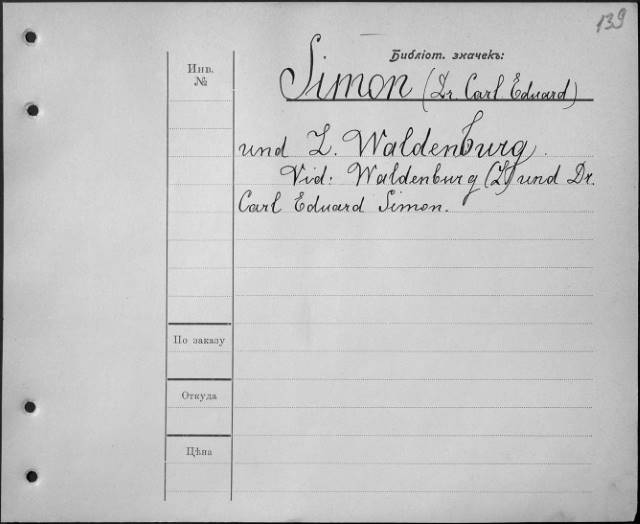 139
Библіот. значекъ:
Инв.
№
Simon (Dr. Carl Eduard)
und L. Waldenburg.
Vid: Waldenburg (L) und Dr.
Carl Eduard Simon.
По заказу
Откуда
Цѣна